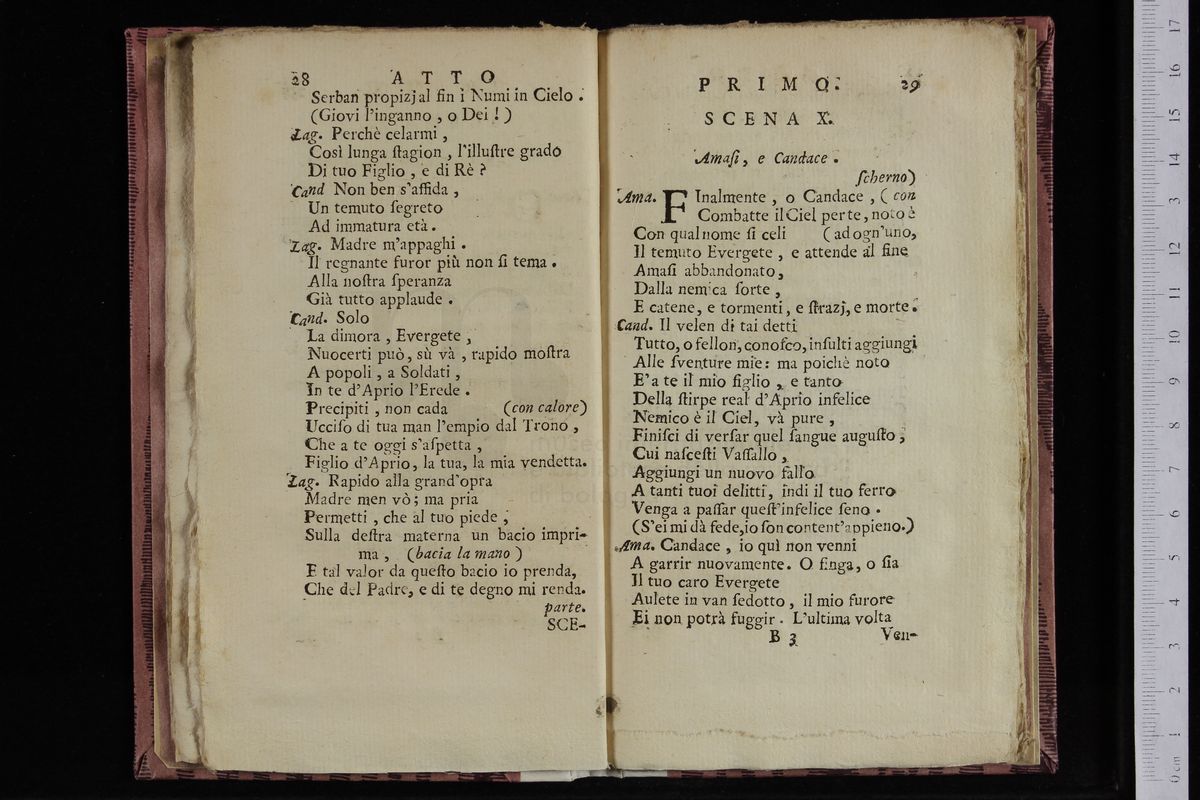 28 ATTO
Serban propizj al fin i Numi in Cielo .
(Giovi l'inganno , o Dei ! )
Lag. Perchè celarmi ,
Così lunga ſtagion , l'illuſtre grado
Di tuo Figlio , e di Rè ?
Cand Non ben s'affida ,
Un temuto ſegreto
Ad immatura età .
Lag. Madre m'appaghi .
Il regnante furor più non ſi tema .
Alla noſtra ſperanza
Già tutto applaude .
Cand. Solo
La dimora , Evergete ,
Nuocerti può, sù và , rapido moſtra
A popoli , a Soldati ,
In te d'Aprio l'Erede .
Precipiti , non cada (con calore)
Ucciſo di tua man l'empio dal Trono ,
Che a te oggi s'aſpetta ,
Figlio d'Aprio, la tua, la mia vendetta.
Lag. Rapido alla grand'opra
Madre men vò; ma pria
Permetti , che al tuo piede ,
Sulla deſtra materna un bacio impri-
ma , (bacia la mano )
E tal valor da queſto bacio io prenda,
Che del Padre, e di te degno mi renda.
parte.
SCE-
PRIMO. 29
SCENA X.
Amaſi, e Candace .
ſcherno)
Ama. FInalmente , o Candace , ( con
Combatte il Ciel per te, noto è
Con qual nome ſi celi ( ad ogn'uno,
Il temuto Evergete , e attende al fine
Amaſi abbandonato,
Dalla nemica ſorte ,
E catene, e tormenti, e ſtrazj, e morte.
Cand. Il velen di tai detti
Tutto, o fellon, conoſco, inſulti aggiungi
Alle ſventure mie: ma poichè noto
E' a te il mio figlio , e tanto
Della ſtirpe real d'Aprio infelice
Nemico è il Ciel, và pure ,
Finiſci di verſar quel ſangue auguſto ,
Cui naſceſti Vaſſallo ,
Aggiungi un nuovo fallo
A tanti tuoi delitti, indi il tuo ferro
Venga a paſſar queſt'infelice ſeno .
(S'ei mi dà fede, io ſon content'appieno.)
Ama. Candace , io quì non venni
A garrir nuovamente. O finga, o ſia
Il tuo caro Evergete
Aulete in van ſedotto , il mio furore
Ei non potrà fuggir . L'ultima volta
B 3 Ven-